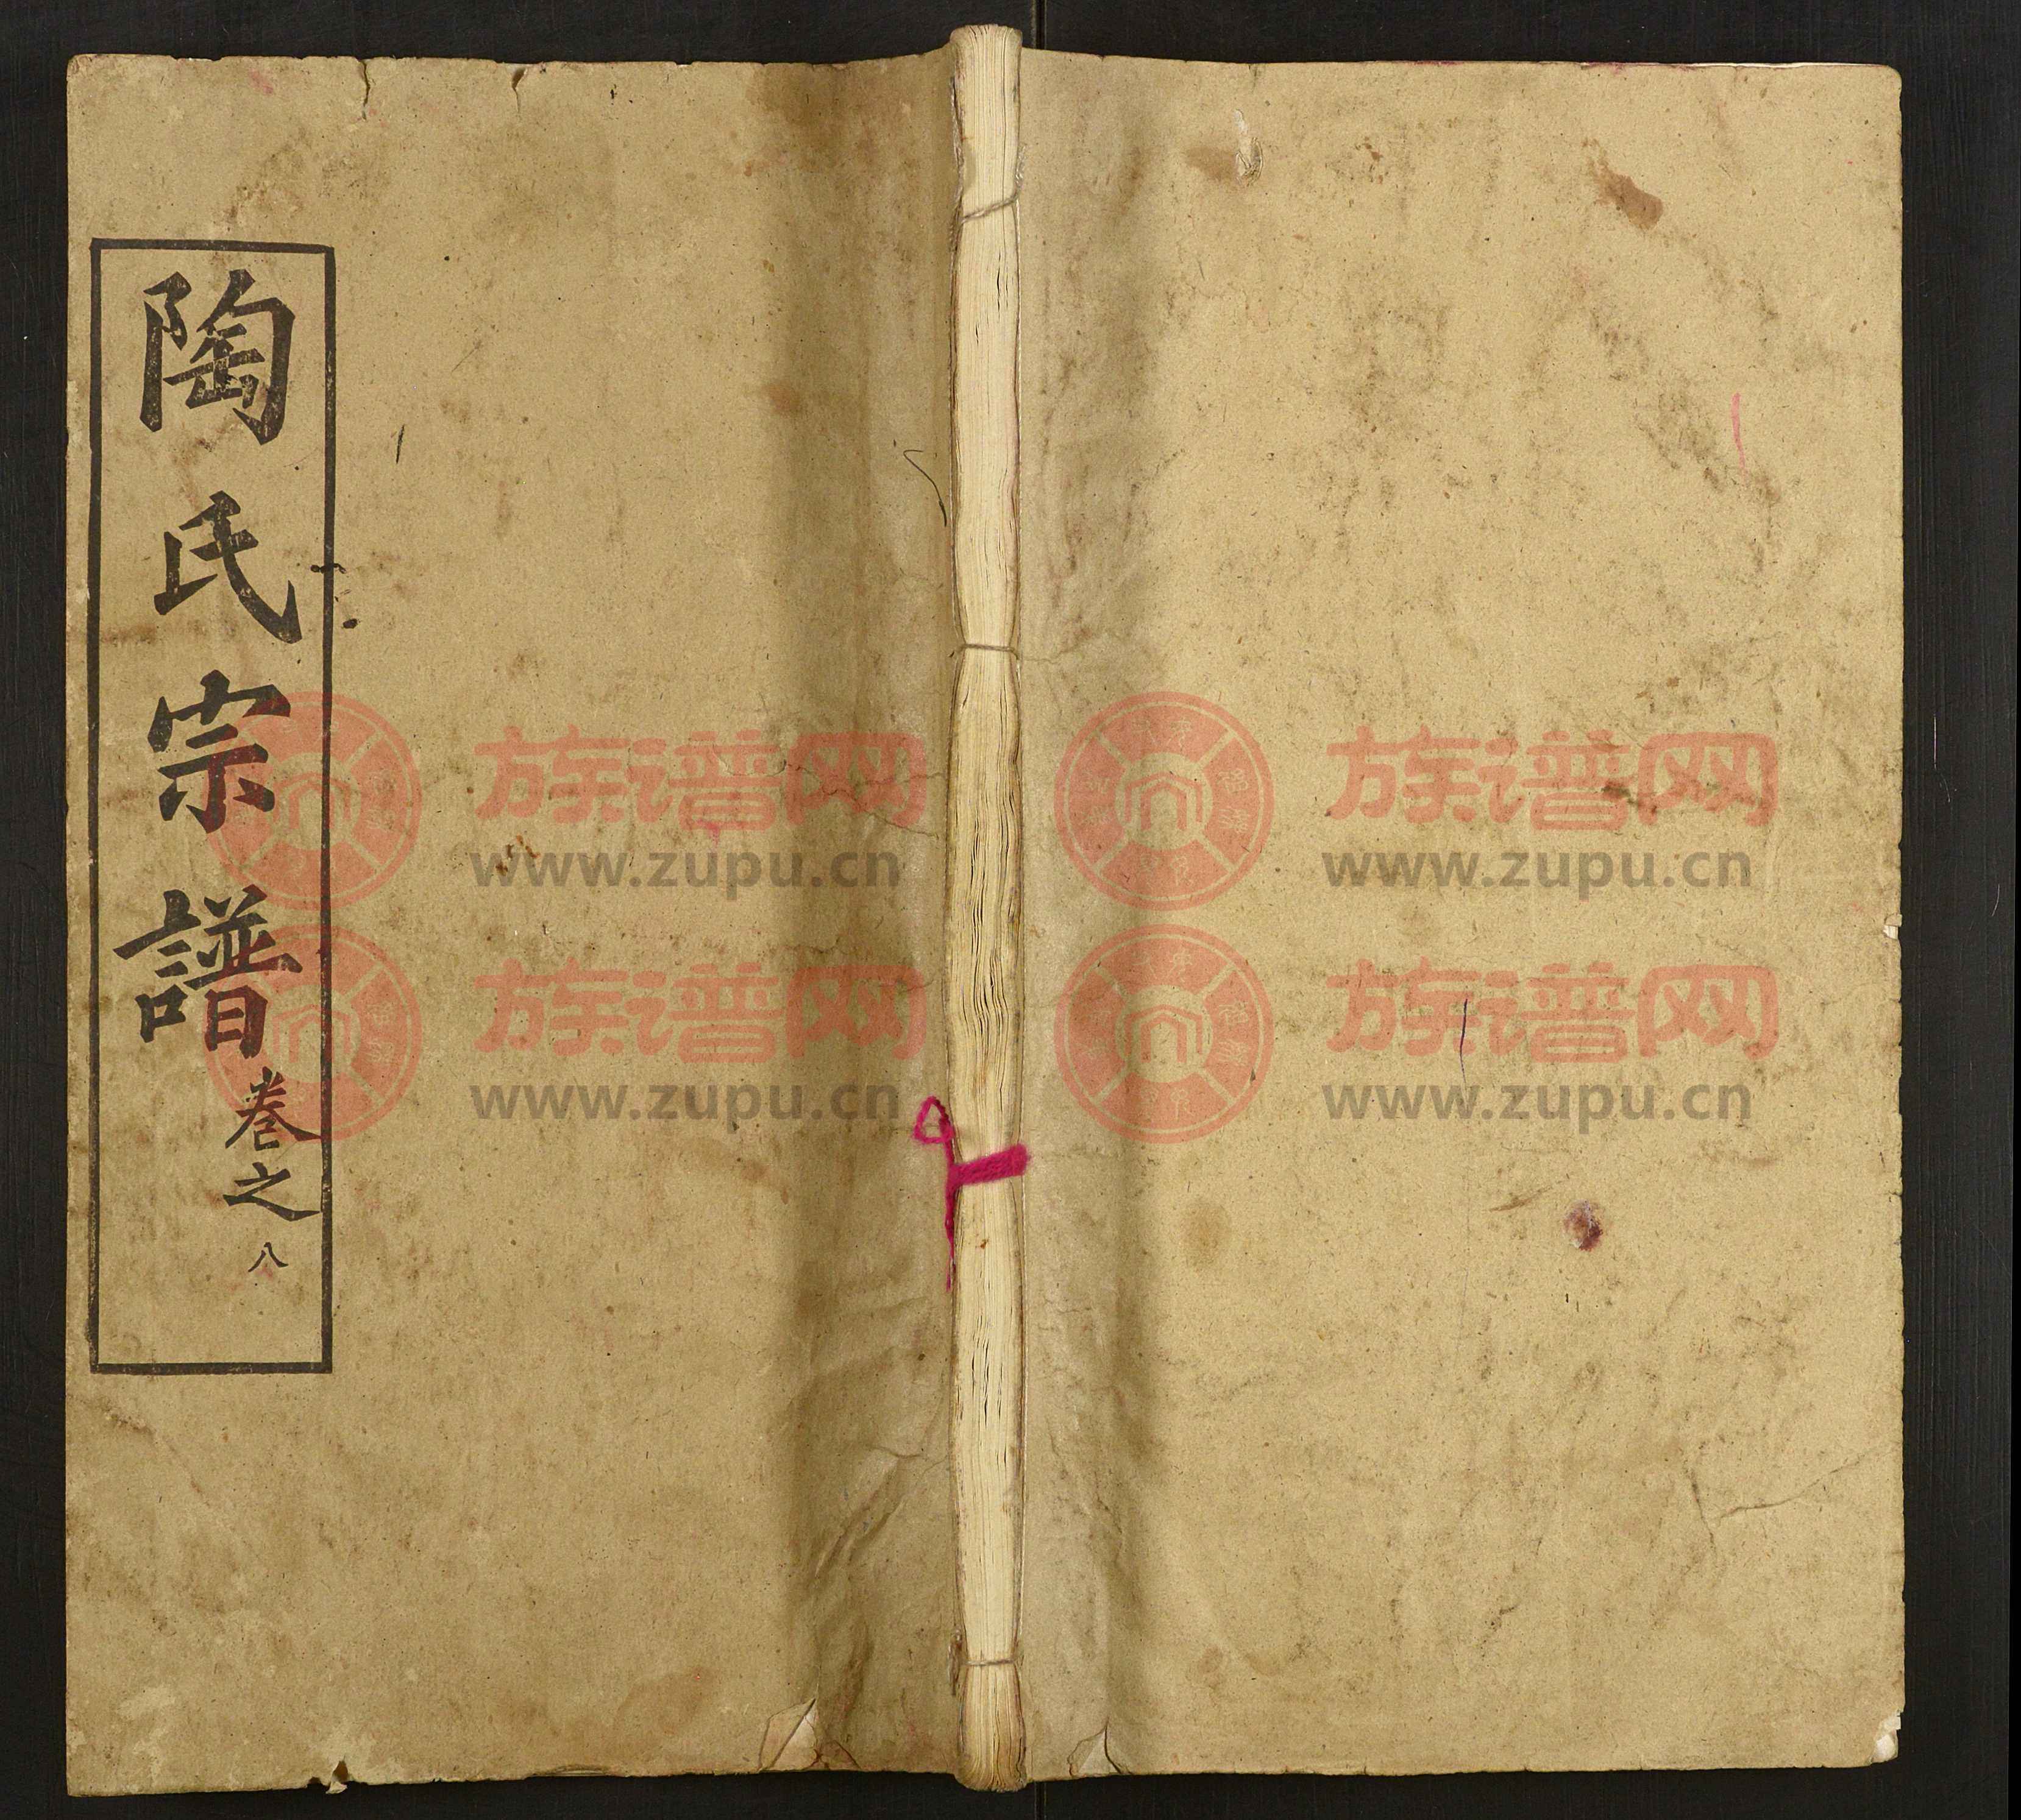 陶氏宗譜
卷之八
族谱网
www.zupu.cn
族谱网
www.zupu.cn
族谱网
www.zupu.cn
族谱网
www.zupu.cn